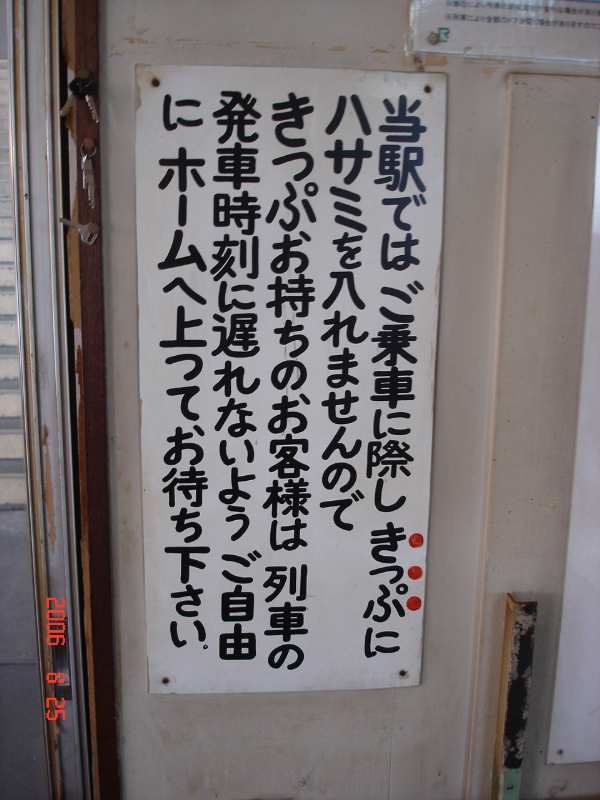 当駅では ご乗車に際し きっぷに
ハサミを入れませんので
きっぷお持ちのお客様は 列車の
発車時刻に遅れないよう ご自由
に ホームへ上ってお待ち下さい。
2006 8 25